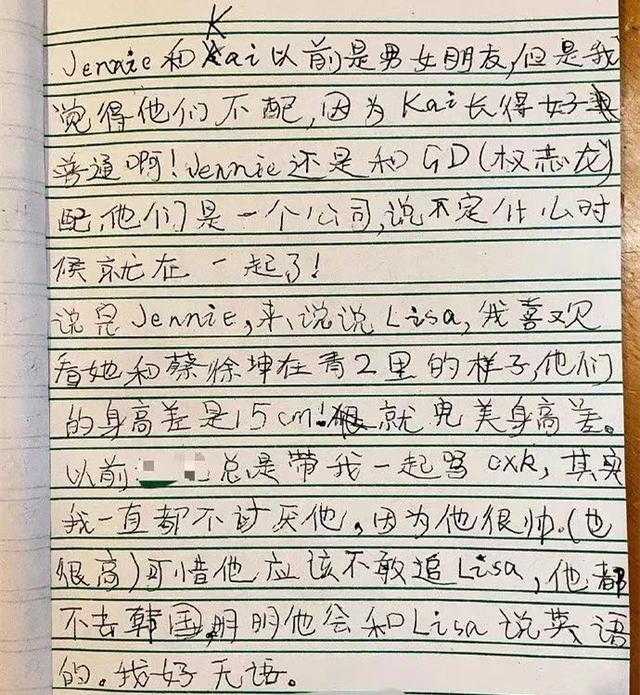 K
Jennie和Kai以前是男女朋友,但是我
觉得他们不配,因为Kai长得好
普通啊!Jennie还是和GD(权志龙)
配,他们是一个公司,说不定什么时
候就在一起了!
说完Jennie,来说说Lisa,我喜欢
看她和蔡徐坤在青2里的样子,他们
的身高差是15cm!就完美身高差。
以前 总是带我一起骂cxk,其实
我一直都不讨厌他,因为他很帅.(也
很高)可惜他应该不敢追Lisa,他都
不去韩国,明明他会和Lisa说英语
的。我好无语。